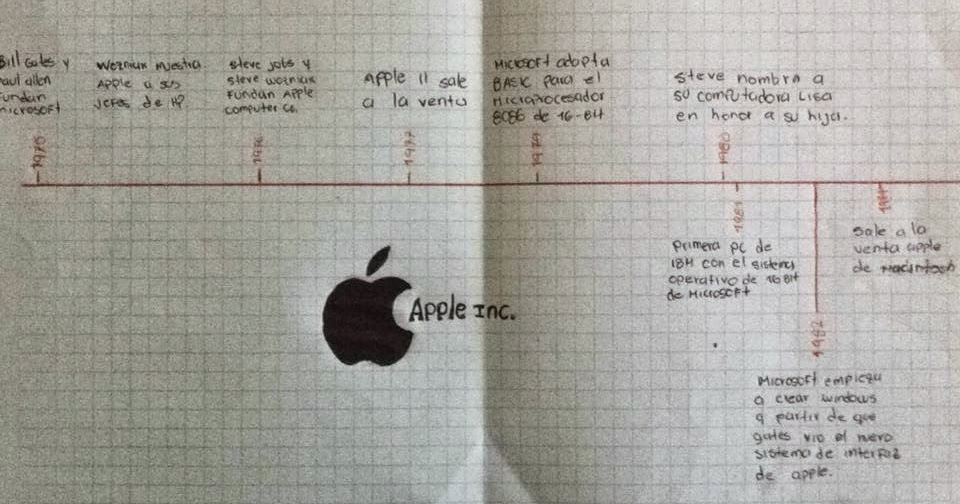 Bill Gates y
Paul allen
Fundan
microsoft
1975
Wozniak muestra
Apple a sus
jefes de HP
Steve jobs y
Steve wozniak
Fundan Apple
computer Co.
1976
Apple II sale
a la venta
1977
Microsoft adopta
BASIC para el
Microprocesador
8086 de 16-Bit
1979
Steve nombra a
su computadora Lisa
en honor a su hija.
1980
1981
Primera PC de
IBM con el sistema
operativo de 16 Bit
de Microsoft
1982
Microsoft empieza
a crear windows
a partir de que
gates vio el nuevo
sistema de interfaz
de apple.
Sale a la
venta apple
de macintosh
Apple Inc.